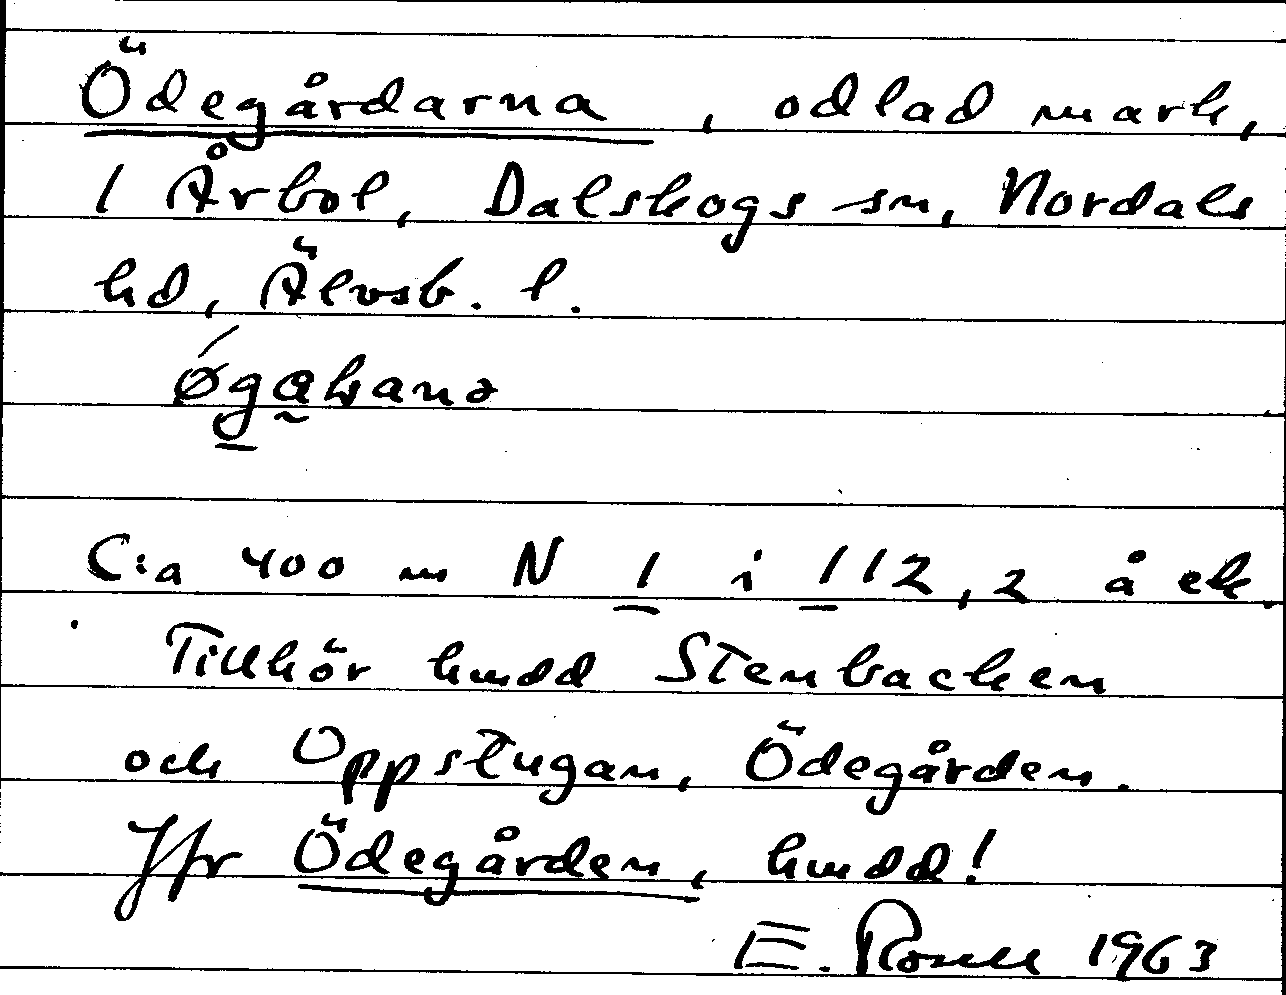 Ödegårdarna, odlad mark,
1 Årbol, Dalskogs sn, Nordals
hd, Älvsb. l.
C:a 400 m N 1 i 112,2 å ek.
Tillhör hmdd Stenbacken
och Oppstugan, Ödegården.
Jfr Ödegården, hmdd!
E. Rosell 1963